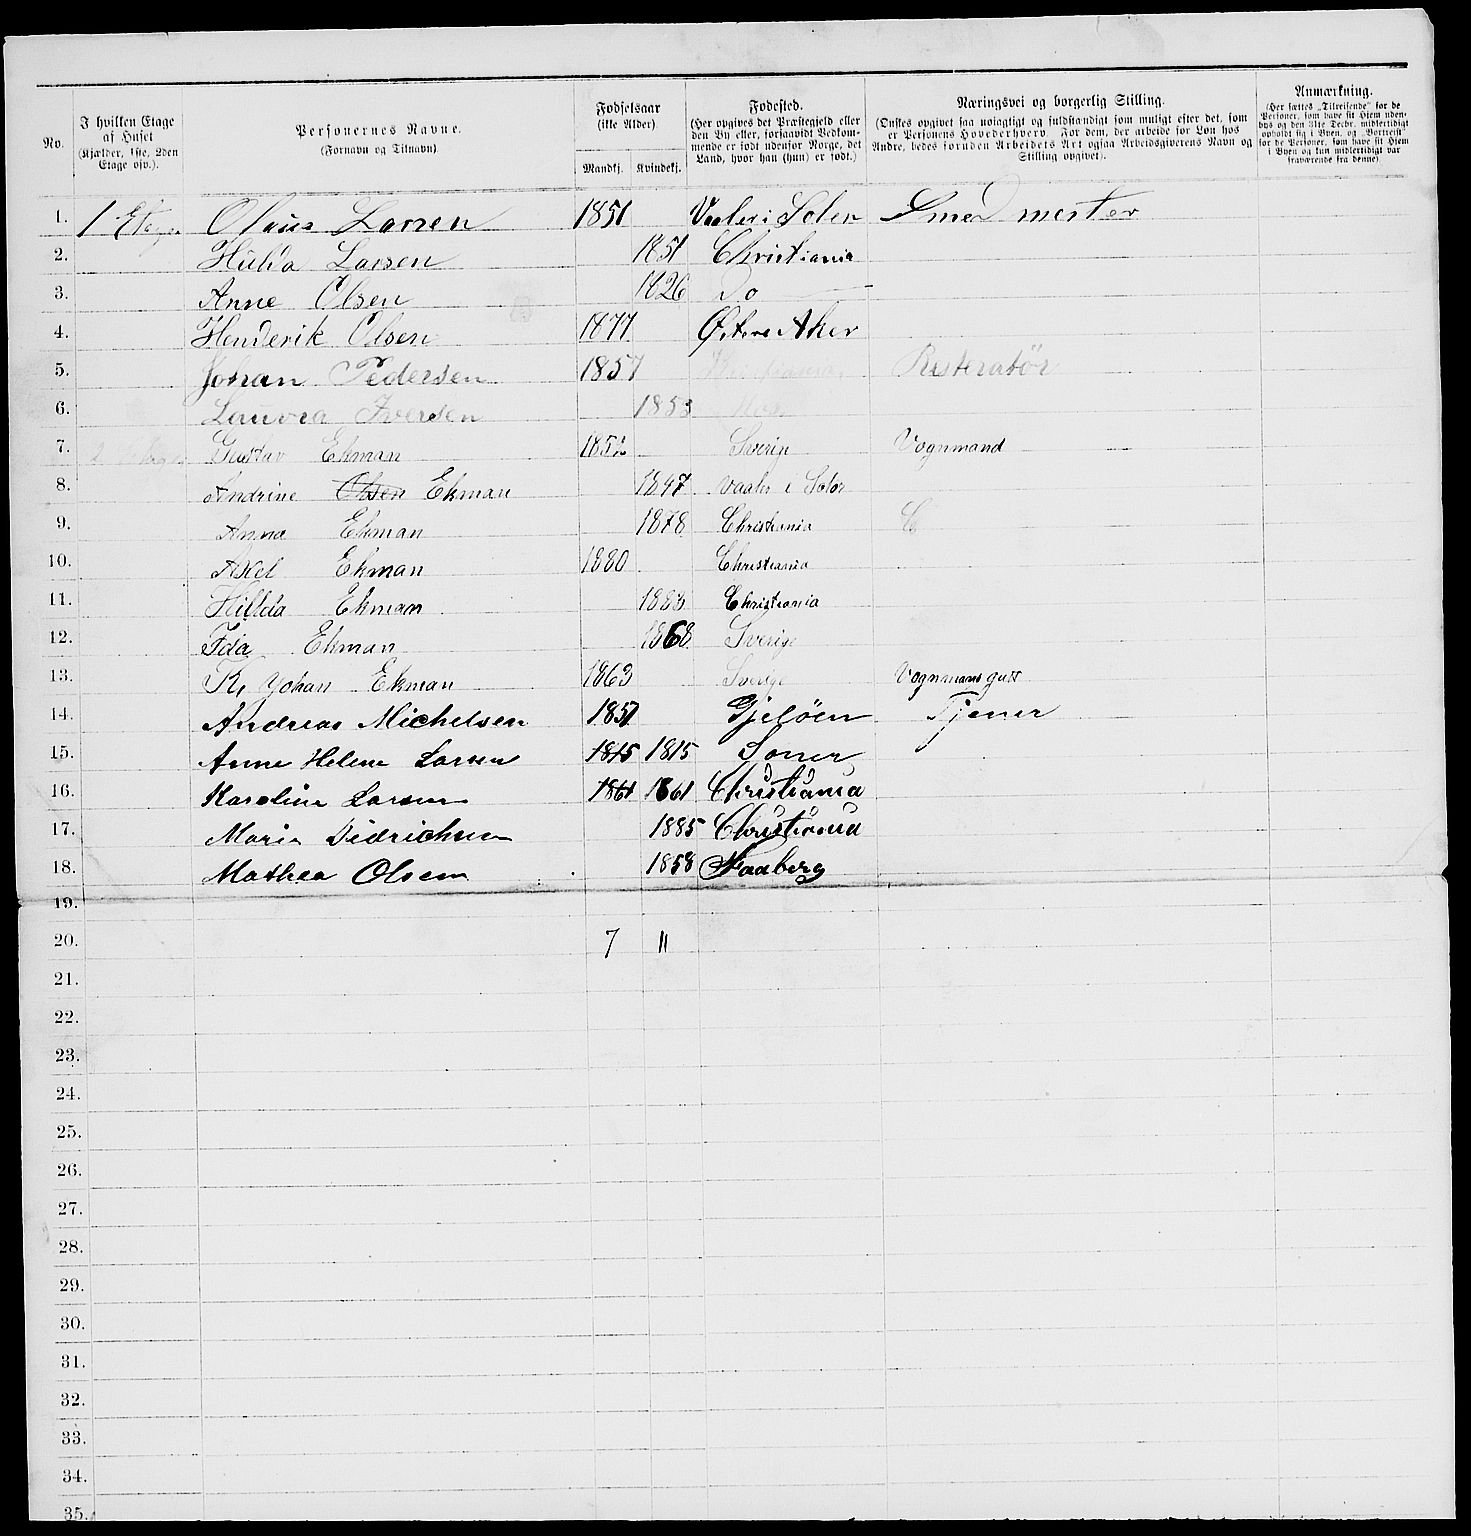 No.
I hvilken Etage af Huset (Kjælder, 1ste, 2den Etage osv.).
Personernes Navne. (Fornavn og Tilnavn)
Fødselsaar (ikke Alder) Mandkj. Kvindekj.
Fødested. (Her opgives det Præstegjeld eller den By eller, forsaavidt Vedkommende er født udenfor Norge, det Land, hvor han (hun) er født.)
Næringsvei og borgerlig Stilling. (Ønskes opgivet saa nøiagtigt og fuldstændigt som muligt efter det, som er Personens Hovederhverv. For dem, der arbeide for Løn hos Andre, bedes foruden Arbeidets Art ogsaa Arbeidsgiverens Navn og Stilling opgivet).
Anmærkning. (Her sættes „Tilreisende" for de Personer, som have sit Hjem udenbys og den 31te Decbr. midlertidigt opholdt sig i Byen, og „Bortreist" for de Personer, som have sit Hjem i Byen og kun midlertidigt var fraværende fra denne)
1. 1 Etage Olaus Larsen 1851 Vaaler i Soler Smed mester
2. Hulda Larsen 1851 Christiania
3. Anne Olsen 1826 Do
4. Henderik Olsen 1877 Østre Aker
5. Johan Pedersen 1857 Restoratør
6. Lauvra Iversen 1853 Moss
7. 2 Etage Gustav Ekman 1852 Sverige Vognmand
8. Andrine Olsen Ekman 1847 Vaaler i Solør
9. Anna Ekman 1878 Christiania
10. Axel Ekman 1880 Christiania
11. Hillda Ekman 1883 Christiania
12. Ida Ekman 1868 Sverige
13. K. Johan Ekman 1863 Sverige Vognmans gutt
14. Andreas Michelsen 1857 Gjeløen Tjener
15. Anne Helene Larsen 1815 1815 Soner
16. Karoline Larsen 1861 1861 Christiania
17. Marie Didrichsen 1885 Christiania
18. Mathea Olsen 1858 Faaberg
19.
20. 7 11
21.
22.
23.
24.
25.
26.
27.
28.
29.
30.
31.
32.
33.
34.
35.